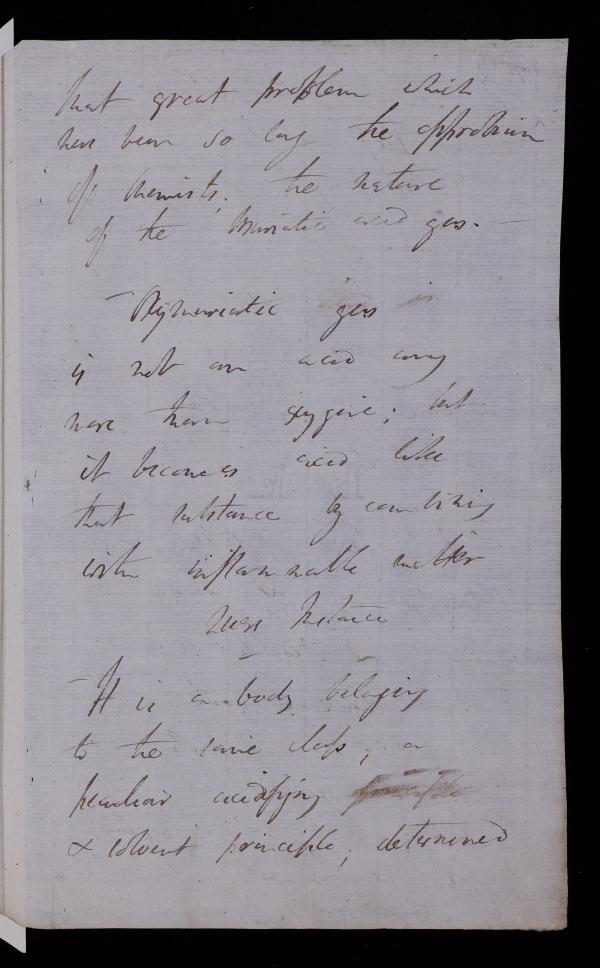 that great problem which
has been so long the opprobrium
of Chemists; the nature
of the Muriatic acid gas. —
— Oxymuriatic gas is
is not an acid any
more than oxygene; but
it becomes acid like
that substance by combining
with inflammable matter
Instance
— It is a body belonging
to the same class; a
peculiar acidifying principle
& solvent principle; determined